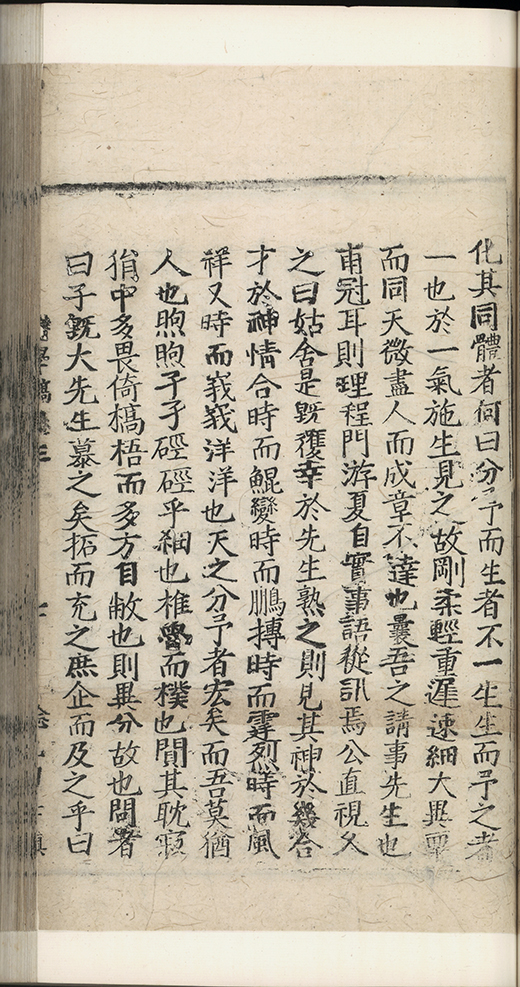 化其同體者何曰分予而生者不一生生而予之者
一也於一氣施生見之故剛柔輕重遲速細大異稟
而同天微盡人而成章不達也曩吾之請事先生也
甫冠耳則理程門游夏自實事語從訊焉公直視久
之曰姑舍是既獲幸於先生熟之則見其神於幾合
才於神情合時而鯤變時而鵬摶時而霆烈時而風
祥又時而峩峩洋洋也天之分予者宏矣而吾莫猶
人也煦煦孑孑硜硜乎細也椎魯而樸也閴其耽寂
狷中多畏倚槁梧而多方自敝也則異分故也問者
曰子既大先生慕之矣拓而充之庶企而及之乎曰